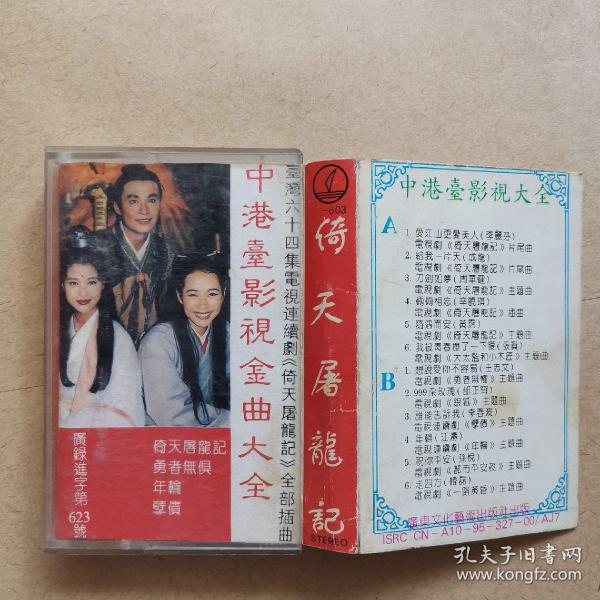 中港臺影視金曲大全
臺灣六十四集電視連續劇《倚天屠龍記》全部插曲
倚天屠龍記
勇者無俱
年輪
孽債
廣錄進字第
623
號
-603
倚天屠龍記
STEREO
中港臺影視大全
A
1. 愛江山更愛美人(李麗芬)
電視劇《倚天屠龍記》片尾曲
2. 給我一片天(成龍)
電視劇《倚天屠龍記》片尾曲
3. 刀劍如夢(周華健)
電視劇《倚天屠龍記》主題曲
4. 倆倆相忘(辛曉琪)
電視劇《倚天屠龍記》插曲
(黃磊)
電視劇《倚天屠龍記》主題曲
6. 我被青春撞了一下腰(張真)
電視劇《大太監和小木匠》主題曲
B
1. 想說愛你不容易(王志文)
電視劇《勇者無懼》主題曲
2. 999朵玫瑰(邰正宵)
電視劇《銀狐》主題曲
3. 誰能告訴我(李春波)
電視連續劇《孽債》主題曲
4. 年輪(江濤)
電視連續劇《年輪》主題曲
5. 祝你平安(孫悅)
電視劇《都市平安夜》主題曲
6. 走四方(韓磊)
電視劇《一路黃昏》主題曲
廣東文化藝術出版社出版
ISRC CN-A10-95-327-00/AJ7
孔夫子旧书网
www.kongfz.com